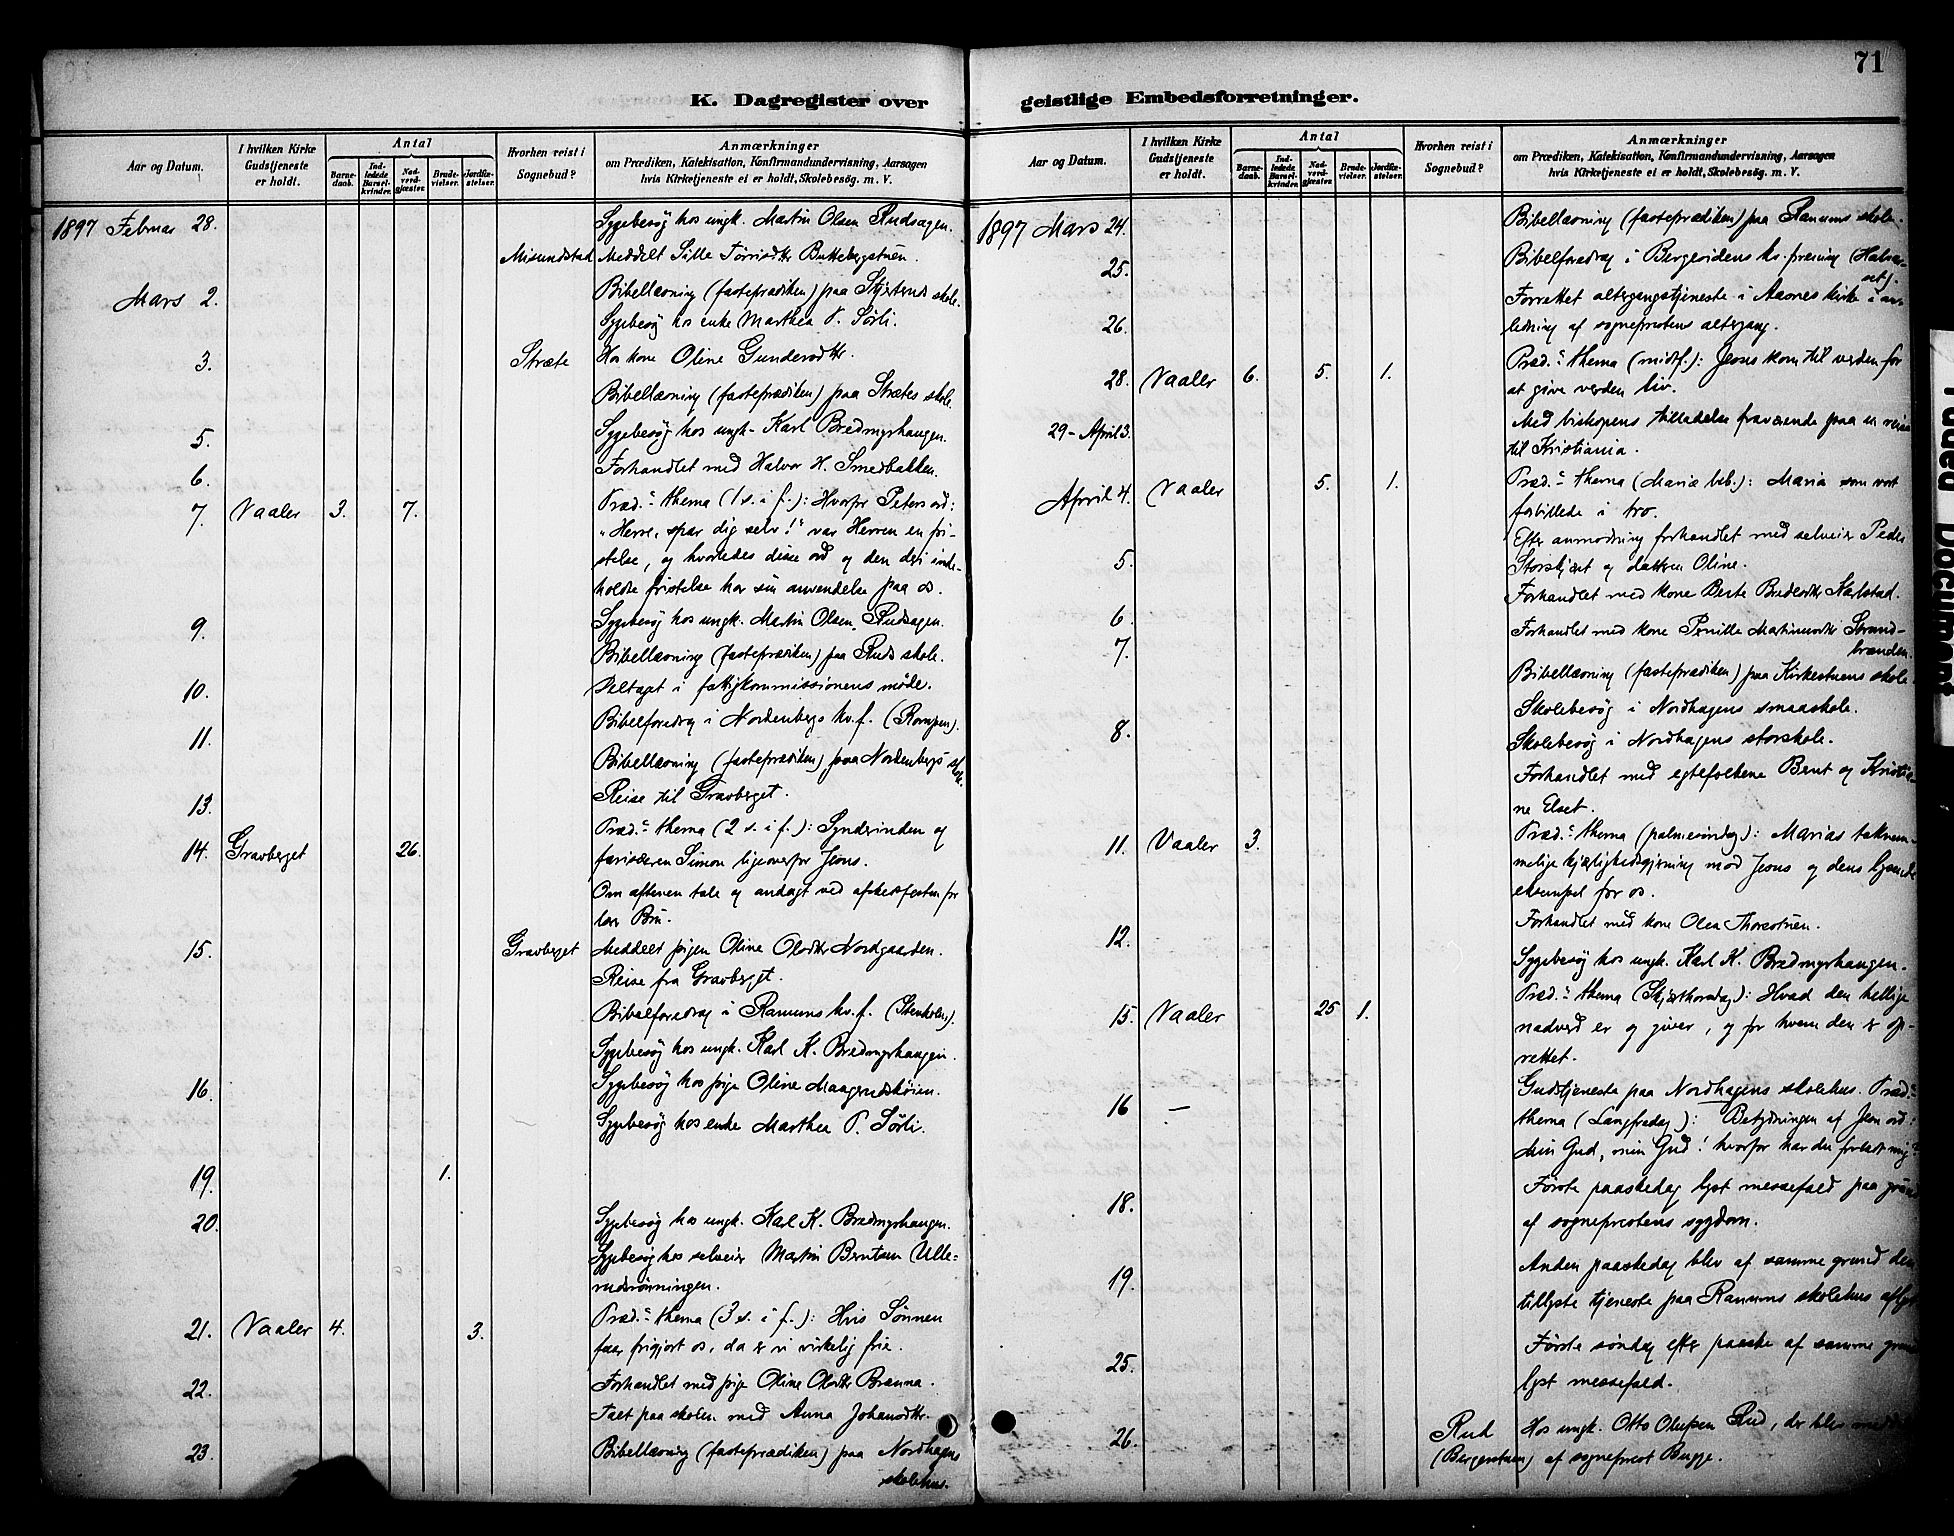 71
K. Dagregister over geistlige Embedsforretninger.
Aar og Datum.
I hvilken Kirke Gudstjeneste er holdt.
Antal
Barnedaab.
Indledede Barselkvinder.
Nadverdgjæster.
Brudevielser.
Jordfæstelser.
Hvorhen reist i Sognebud?
Anmærkninger
om Prædiken, Katekisation, Konfirmandundervisning, Aarsagen
hvis Kirketjeneste ei er holdt, Skolebesøg. m. V.
1897 Februar 28. Sygebesøg hos ungk. Martin Olsen Rudsagen.
Misundstad Meddelt Sille Törrisdtr Buttebergstuen.
Mars 2. Bibellæsning (fasteprædiken) paa skole.
Sygebesøg hos enke Marthea P. Sörli.
3. Stræte Hos kone Oline Gundersdtr.
Bibellæsning (fasteprædiken) paa Strætes skole.
5. Sygebesøg hos ungk. Karl Bredmyrhaugen.
6. Forhandlet med Halvor H. Smedbakken.
7. Vaaler 3. 7. Præd.s thema (1 s. i f.): Hvorfor Peters ord:
"Herre, spar dig selv!" var Herren en fri-
stelse, og hvorledes disse ord og den deri inde-
holdte fristelse har sin anvendelse paa os.
9. Sygebesøg hos ungk. Martin Olsen Rudsagen.
Bibellæsning (fasteprædiken) paa Ruds skole.
10. Deltaget i fattigkommissionens møde.
Bibelforedrag i Nordenbergs kv.f. (Rompen).
11. Bibellæsning (fasteprædiken) paa Nordenbergs skole.
13. Reise til Gravberget.
14. Gravberget 26. Præd.s thema (2 s. i f.): Synderinden og
farisæeren Simon ligeoverfor Jesus.
Om aftenen tale og andagt ved afskedsfesten for
lær. Bru.
15. Gravberget Meddelt pigen Oline Olsdtr Nordgaarden.
Reise fra Gravberget.
Bibelforedrag i Ranums kv.f. (Stenholen).
Sygebesøg hos ungk. Karl K. Bredmyrhaugen.
16. Sygebesøg hos pige Oline
Sygebesøg hos enke Marthea P. Sörli.
19. 1.
20. Sygebesøg hos ungk. Karl K. Bredmyrhaugen.
Sygebesøg hos selveier Martin Berntsen Ulle-
rudsrönningen.
21. Vaaler 4. 3. Præd.s thema (3 s. i f.): Hvis Sønnen
faar frigjort os, da er vi virkelig frie.
22. Forhandlet med pige Oline Olsdtr Brænna.
Talt paa skolen med Anna Johansdtr.
23. Bibellæsning (fasteprædiken) paa Nordhagens
skolehus.
Aar og Datum.
I hvilken Kirke Gudstjeneste er holdt.
Antal
Barnedaab.
Indledede Barselkvinder.
Nadverdgjæster.
Brudevielser.
Jordfæstelser.
Hvorhen reist i Sognebud?
Anmærkninger
om Prædiken, Katekisation, Konfirmandundervisning, Aarsagen
hvis Kirketjeneste ei er holdt, Skolebesøg. m. V.
1897 Mars 24. Bibellæsning (fasteprædiken) paa Ranums skole.
25. Bibelforedrag i Bergesidens kv.forening (Halvor-
set).
26. Forrettet altergangstjeneste i Aasnes kirke i an-
ledning af sogneprestens altergang.
28. Vaaler 6. 5. 1. Præd.s thema (midtf.): Jesus kom til verden for
at give verden liv.
29 - April 3. Med biskopens tilladelse fraværende paa en reise
til Kristiania.
April 4. Vaaler 5. 1. Præd.s thema (Mariæ beb.): Maria som vort
forbillede i tro.
5. Efter anmodning forhandlet med selveier Peder
og datteren Oline.
6. Forhandlet med kone Berte Karlstad.
7. Forhandlet med kone Pernille Martinusdtr Strand-
brænden.
Bibellæsning (fasteprædiken) paa Kirkestuens skole.
8. Skolebesøg i Nordhagens smaaskole.
Skolebesøg i Nordhagens storskole.
Forhandlet med egtefolkene Bernt og Kristia-
ne Elset.
11. Vaaler 3. Præd.s thema (palmesöndag): Marias taknem-
melige kjærlighedsgjerning mod Jesus og dens lysende
eksempel for os.
12. Forhandlet med kone Olea Thorsstuen.
Sygebesøg hos ungk. Karl K. Bredmyrhaugen.
15. Vaaler 25 1. Præd.s thema (Skjærthorsdag): Hvad den hellige
nadverd er og giver, og for hvem den er op-
rettet.
16 — Gudstjeneste paa Nordhagens skolehus. Præd.s
thema (Langfredag): Betydningen af Jesu ord:
Min Gud, min Gud! hvorfor har du forladt mig?
18. Første paaskedag lyst messefald paa grund
af sogneprestens sygdom.
19. Anden paaskedag blev af samme grund den
tillyste tjeneste paa Ranums skolehus aflyst
25. Første søndag efter paaske af samme grund
lyst messefald.
26. Rud Hos ungk. Otto Olufsen Rud, der blev meddelt
(Bergerstuen) af sogneprest Bugge.